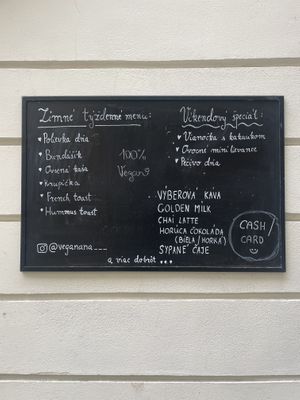 Zimné týždenné menu:
Polievka dňa
Bundášik
Ovsená kaša
Krupička
French toast
Hummus toast
100%
Vegan
Víkendový špeciál:
Vianočka s kakaukom
Ovocné mini lievance
Pečivo dňa
VÝBEROVÁ KÁVA
GOLDEN MILK
CHAI LATTE
HORÚCA ČOKOLÁDA
(BIELA/HORKÁ)
SYPANÉ ČAJE
CASH/
CARD
@veganana___
a viac dobrôt...